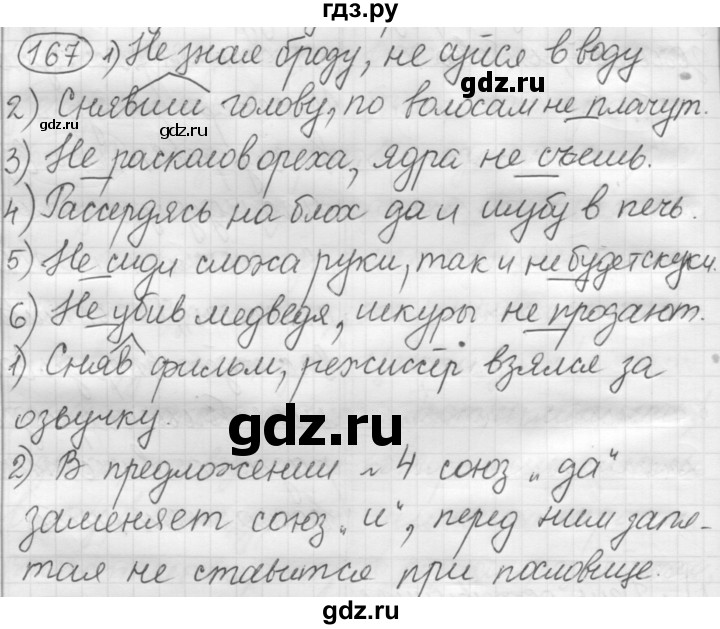 гдз.ру
167 1) Не зная броду, не суйся в воду
gdz.ru
2) Снявши голову, по волосам не плачут.
gdz.ru gdz.ru
3) Не расколов ореха, ядра не съешь.
4) Рассердясь на блох да и шубу в печь.
5) Не сиди сложа руки, так и не будет скуки.
6) Не убив медведя, шкуры не продают.
1) Сняв фильм, режиссёр взялся за
озвучку.
gdz.ru
2) В предложении № 4 союз „да“
заменяет союз „и“, перед ним запя-
тая не ставится при пословице.
gdz.ru gdz.ru
гдз.ру